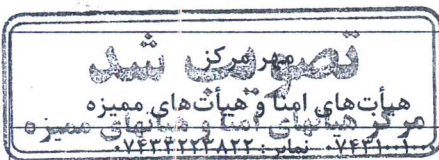 تصویب شد
مهر مرکز
هیأت‌های امنا و هیأت‌های ممیزه
مرکز هیأتهای امنا و هیأتهای ممیزه
نمابر: ۰۷۴۳۲۲۲۳۸۲۲